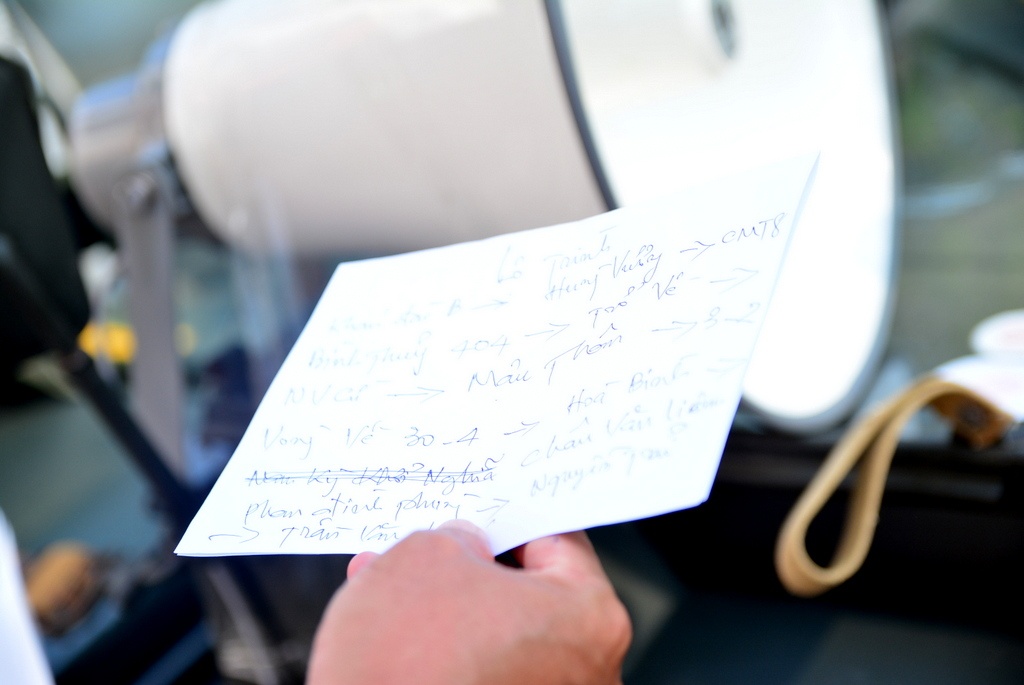 Lộ Trình
→ Hùng Vương → CMT8
Bình Thủy 404 → Trở Về →
NVCừ → Mậu Thân → 3-2
Vòng Về 30-4 → Hoà Bình →
Nam Kỳ Khởi Nghĩa Châu Văn Liêm
phan đình phùng → Nguyễn Trãi
→ Trần Văn